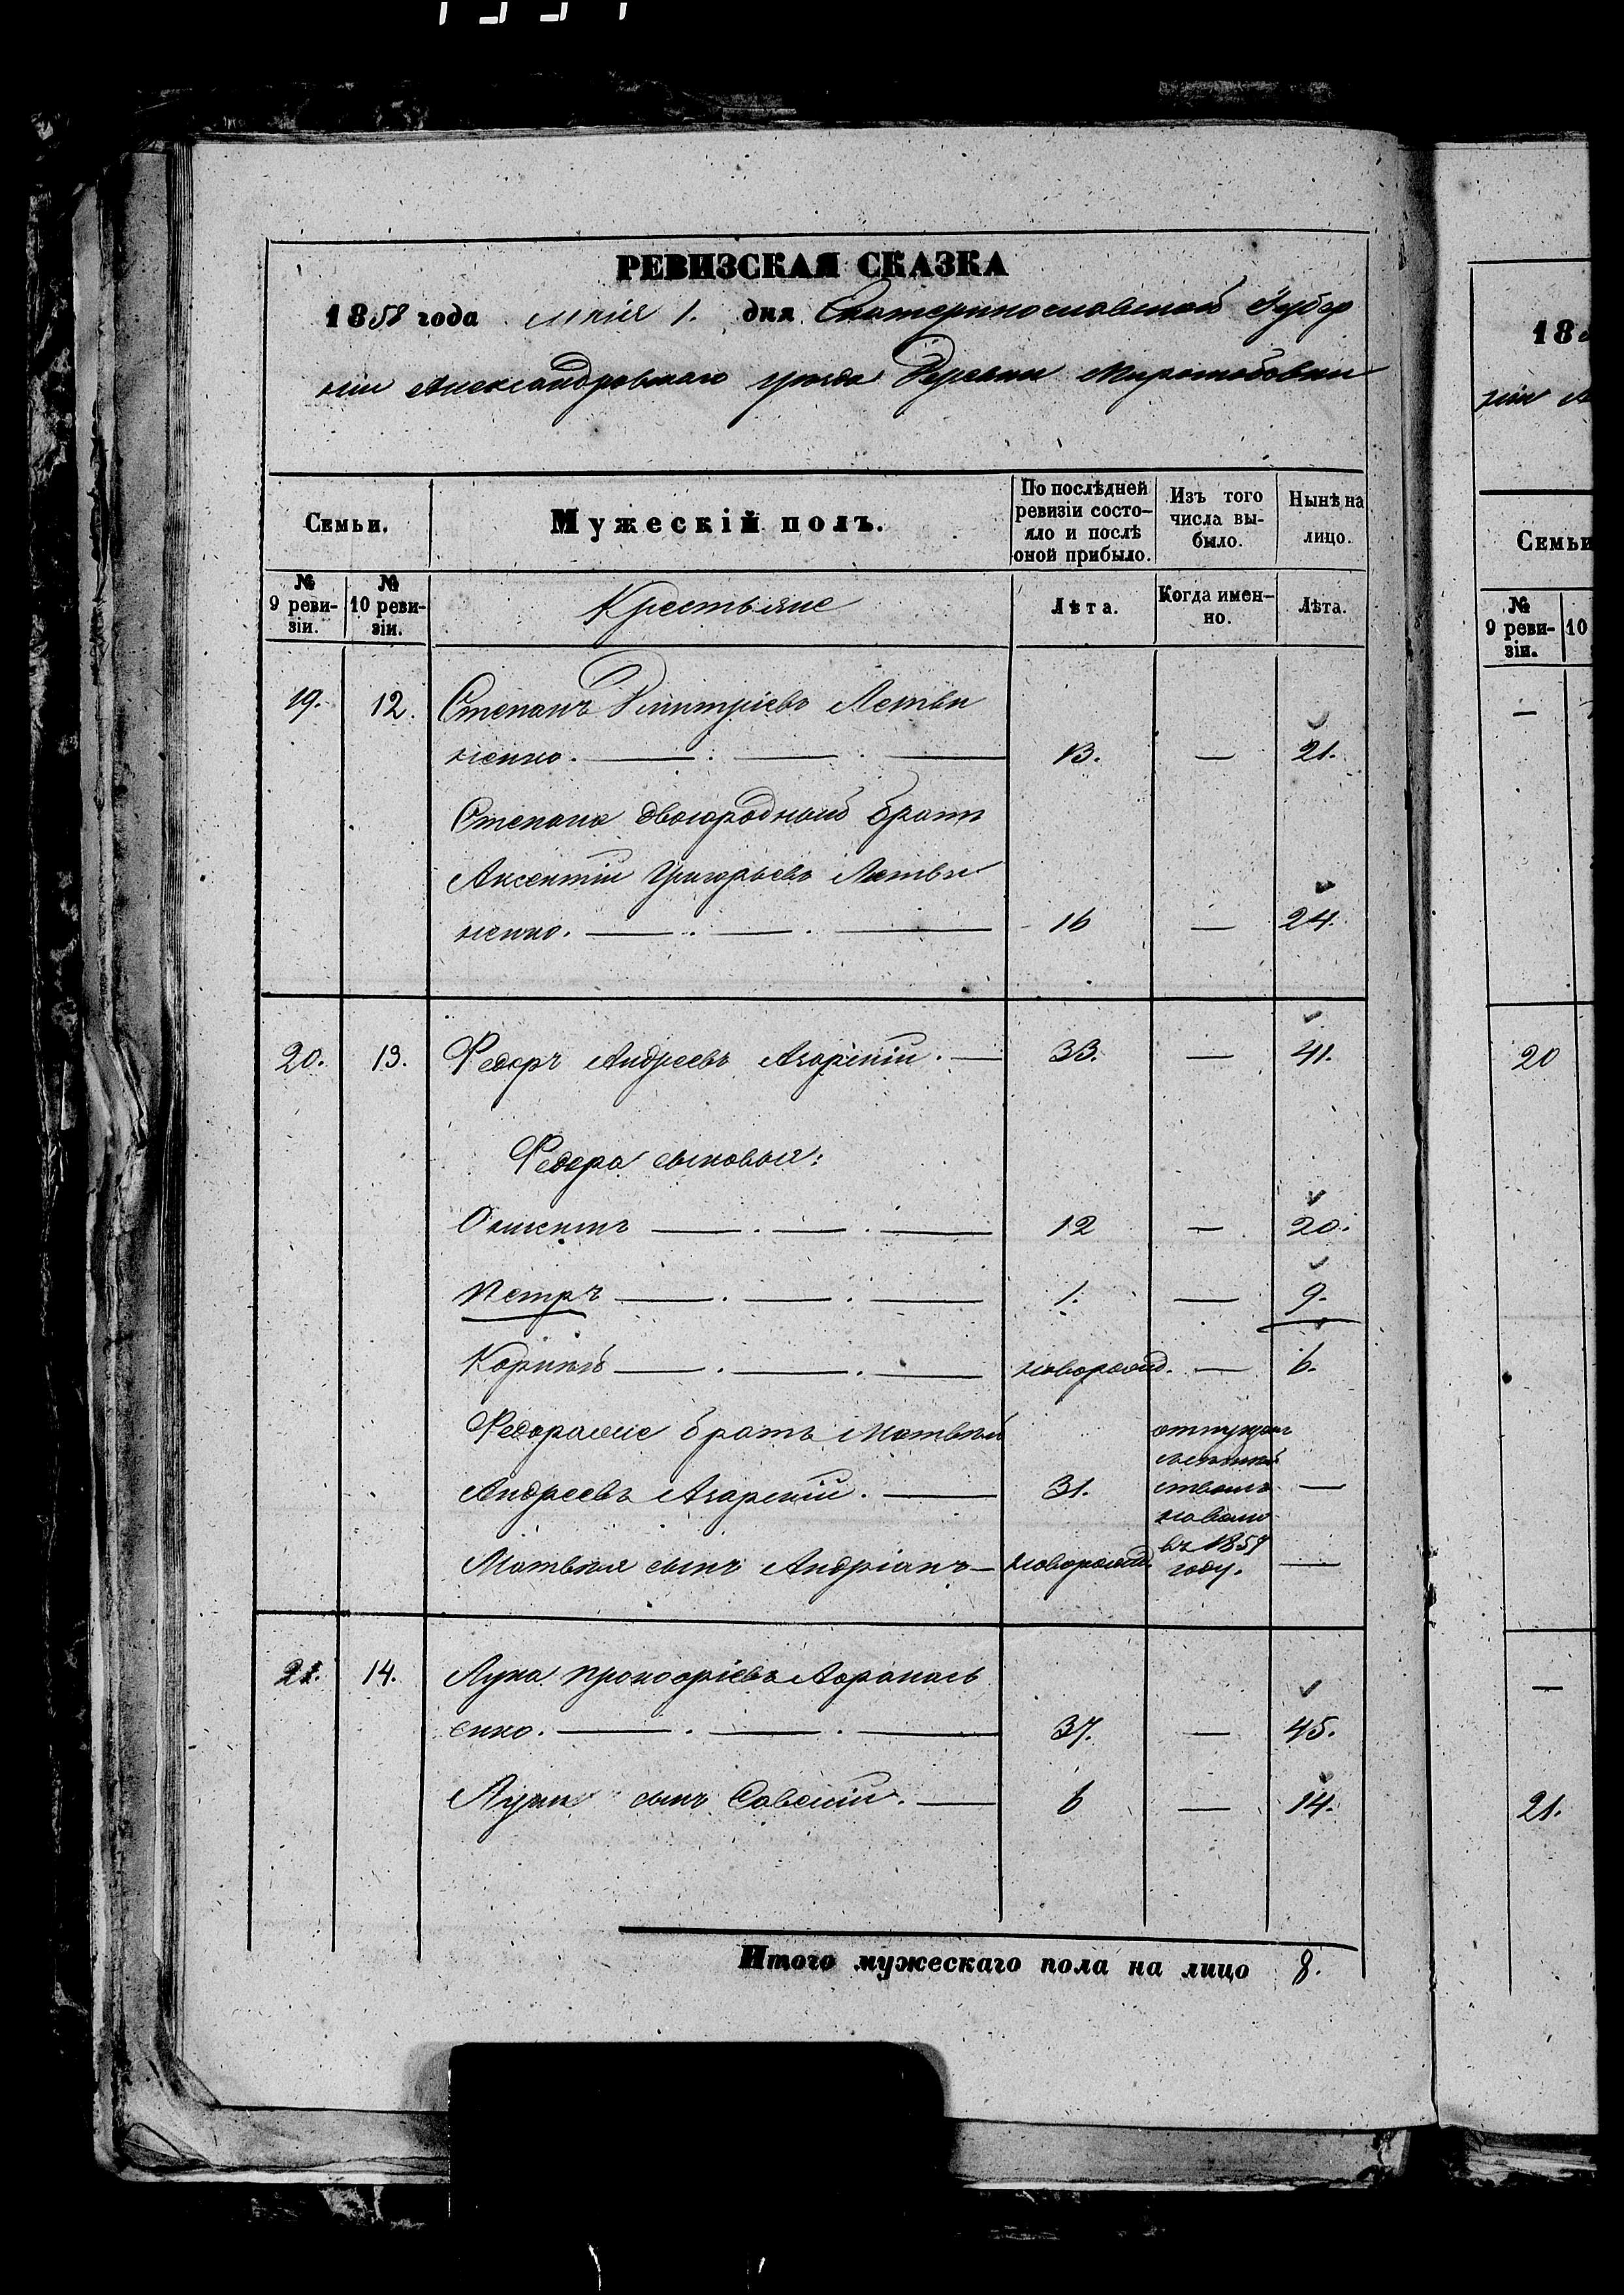 РЕВИЗСКАЯ СКАЗКА
1858 года маія 1. дня Екатеринославской Губер
ніи Александровскаго уѣзда Деревни Миролюбовки
Семьи.
Мужескій полъ.
По послѣдней ревизіи состо-
яло и послѣ
оной прибыло.
Изъ того
числа вы-
было.
Нынѣ на
лицо.
№
9 реви-
зіи.
№
10 реви-
зіи.
Крестьяне
Лѣта.
Когда имен-
но.
Лѣта.
19. 12. Степанъ Дмитріевъ Летви
ненко. — . — . — 13. — 21.
Степана двоюродный братъ
Аксентій Григорьевъ Летви
ненко. — . — . — 16 — 24.
20. 13. Федоръ Андреевъ Азарскій. — 33. — 41.
Федора сыновья:
— . — . — 12 — 20.
Петръ — . — . — 1. — 9.
Корнѣй — . — . — новорожд. — 6.
Федора же братъ Матвѣй
Андреевъ Азарскій. — 31. —
Матвѣя сынъ Андріанъ — новорожд. —
въ 1857
году.
21. 14. Лука Прокофіевъ Афанась
енко. — . — . — 37. — 45.
Луки сынъ Савелій. — 6 — 14.
Итого мужескаго пола на лицо 8.
18
Семьи
№
9 реви-
зіи.
10
—
20
—
21.